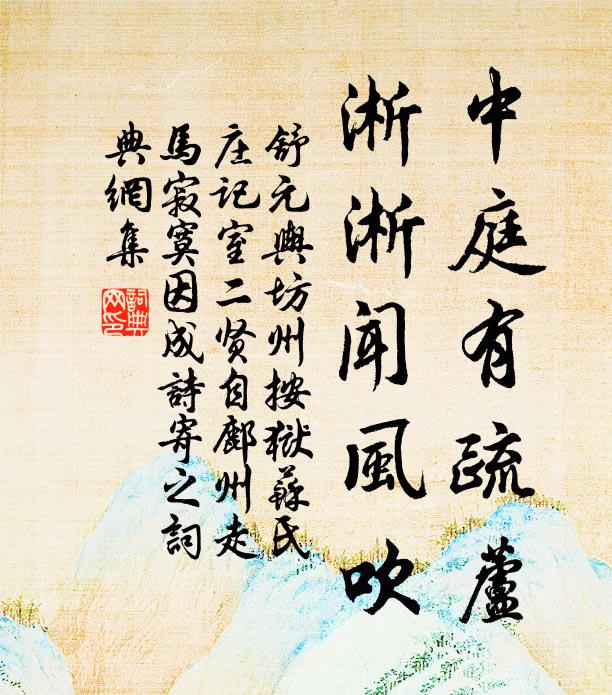 中庭有疏蘆
淅淅聞風吹
舒元輿坊州按獄蘇氏
庄记室二贤自鄜州走
馬寂寞因成詩寄之詞
典網集
詞典网印